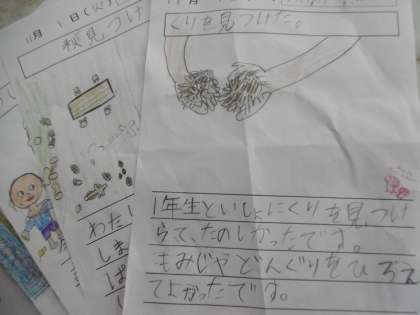 11月1日(火)
秋見つけ
わたし
しま
ぱ
くりを見つけた。
1年生といしょにくりを見つけ
られて、たのしかったです。
もみじやどんぐりをひろえ
てよかったです。